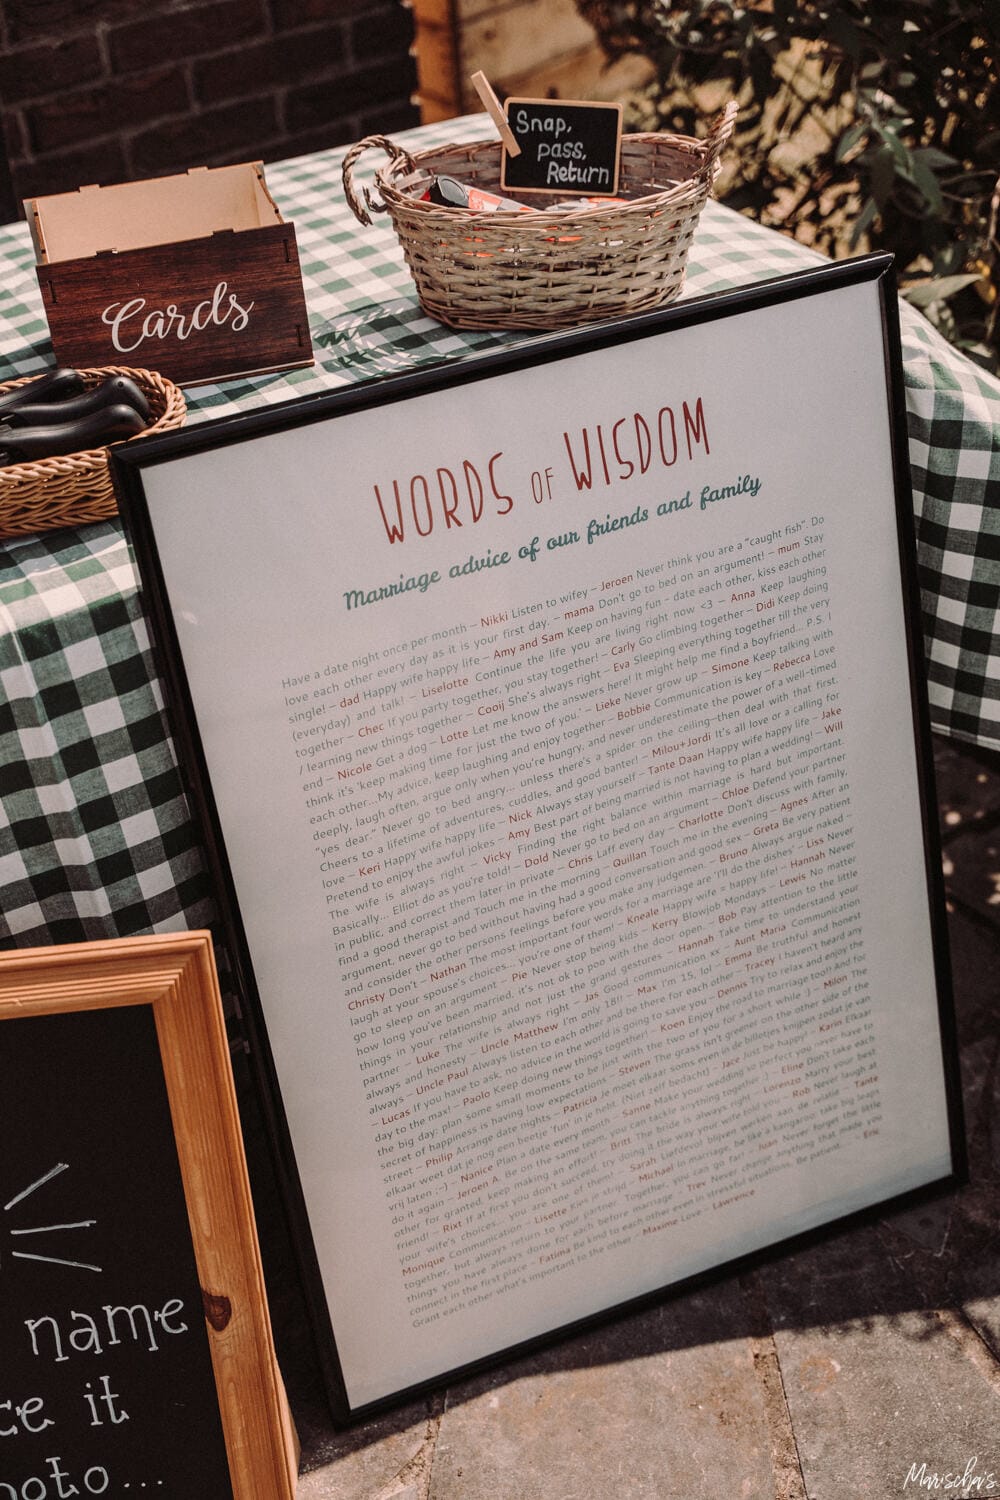 Snap,
pass,
Return
Cards
WORDS OF WISDOM
Marriage advice of our friends and family
Have a date night once per month – Nikki Listen to wifey – Jeroen Never think you are a "caught fish". Do
love each other every day as it is your first day. – mama Don't go to bed on an argument! – mum Stay
single! – dad Happy wife happy life – Amy and Sam Keep on having fun - date each other, kiss each other
(everyday) and talk! – Liselotte Continue the life you are living right now <3 – Anna Keep laughing
together – Chec If you party together, you stay together! – Carly Go climbing together – Didi Keep doing
/ learning new things together – Cooij She's always right – Eva Sleeping everything together till the very
end – Nicole Get a dog – Lotte Let me know the answers here! It might help me find a boyfriend... P.S. I
think it's 'keep making time for just the two of you.' – Lieke Never grow up – Simone Keep talking with
each other...My advice, keep laughing and enjoy together – Bobbie Communication is key – Rebecca Love
deeply, laugh often, argue only when you're hungry, and never underestimate the power of a well-timed
"yes dear." Never go to bed angry... unless there's a spider on the ceiling—then deal with that first.
Cheers to a lifetime of adventures, cuddles, and good banter! – Milou+Jordi It's all love or a calling for
love – Keri Happy wife happy life – Nick Always stay yourself – Tante Daan Happy wife happy life – Jake
Pretend to enjoy the awful jokes – Amy Best part of being married is not having to plan a wedding! – Will
The wife is always right – Vicky Finding the right balance within marriage is hard but important.
Basically... Elliot do as you're told! – Dold Never go to bed on an argument – Chloe Defend your partner
in public, and correct them later in private – Chris Laff every day – Charlotte Don't discuss with family,
find a good therapist and Touch me in the morning – Quillan Touch me in the evening – Agnes After an
argument, never go to bed without having had a good conversation and good sex – Greta Be very patient
and consider the other persons feelings before you make any judgement. – Bruno Always argue naked –
Christy Don't – Nathan The most important four words for a marriage are 'I'll do the dishes' – Liss Never
laugh at your spouse's choices... you're one of them! – Kneale Happy wife = happy life! – Hannah Never
go to sleep on an argument – Pie Never stop being kids – Kerry Blowjob Mondays – Lewis No matter
how long you've been married, it's not ok to poo with the door open. – Bob Pay attention to the little
things in your relationship and not just the grand gestures – Hannah Take time to understand your
partner – Luke The wife is always right – Jas Good communication xx – Aunt Maria Communication
always and honesty – Uncle Matthew I'm only 18!! – Max I'm 15, lol – Emma Be truthful and honest
always – Uncle Paul Always listen to each other and be there for each other – Tracey I haven't heard any
– Lucas If you have to ask, no advice in the world is going to save you – Dennis Try to relax and enjoy the
day to the max! – Paolo Keep doing new things together! – Koen Enjoy the road to marriage too!! And for
the big day: plan some small moments to be just with the two of you for a short while :) – Milon The
secret of happiness is having low expectations – Steven The grass isn't greener on the other side of the
street – Philip Arrange date nights – Patricia Je moet elkaar soms even in de billetjes knijpen zodat je van
elkaar weet dat je nog een beetje 'fun' in je hebt. (Niet zelf bedacht) – Jace Just be happy! – Karin Elkaar
vrij laten ;-) – Nanice Plan a date every month – Sanne Make your wedding so perfect you never have to
do it again – Jeroen A. Be on the same team, you can tackle anything together :) – Eline Don't take each
other for granted, keep making an effort! – Britt The bride is always right – Lorenzo Marry your best
friend! – Rixt If at first you don't succeed, try doing it the way your wife told you – Rob Never laugh at
your wife's choices... you are one of them! – Sarah Liefdevol blijven werken aan de relatie – Tante
Monique Communication – Lisette Kies je strijd – Michael In marriage, be like a kangaroo: take big leaps
together, but always return to your partner. Together, you can go far! – Juan Never forget the little
things you have always done for each other before marriage – Trev Never change anything that made you
connect in the first place – Fatima Be kind to each other even in stressful situations. Be patient. – Eric
Grant each other what's important to the other – Maxime Love – Lawrence
name
ce it
hoto...
Marischa's